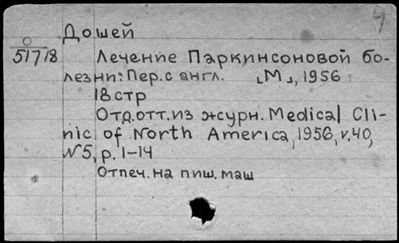 Дошей
О
51778
Лечение Паркинсоновой бо-
лезни: Пер. с англ. „М„, 1956
18 стр
Отд. отт. из журн. Medical Cli-
nic of North America, 1956, v. 40,
N5, p. 1-14
Отпеч. на пиш. маш